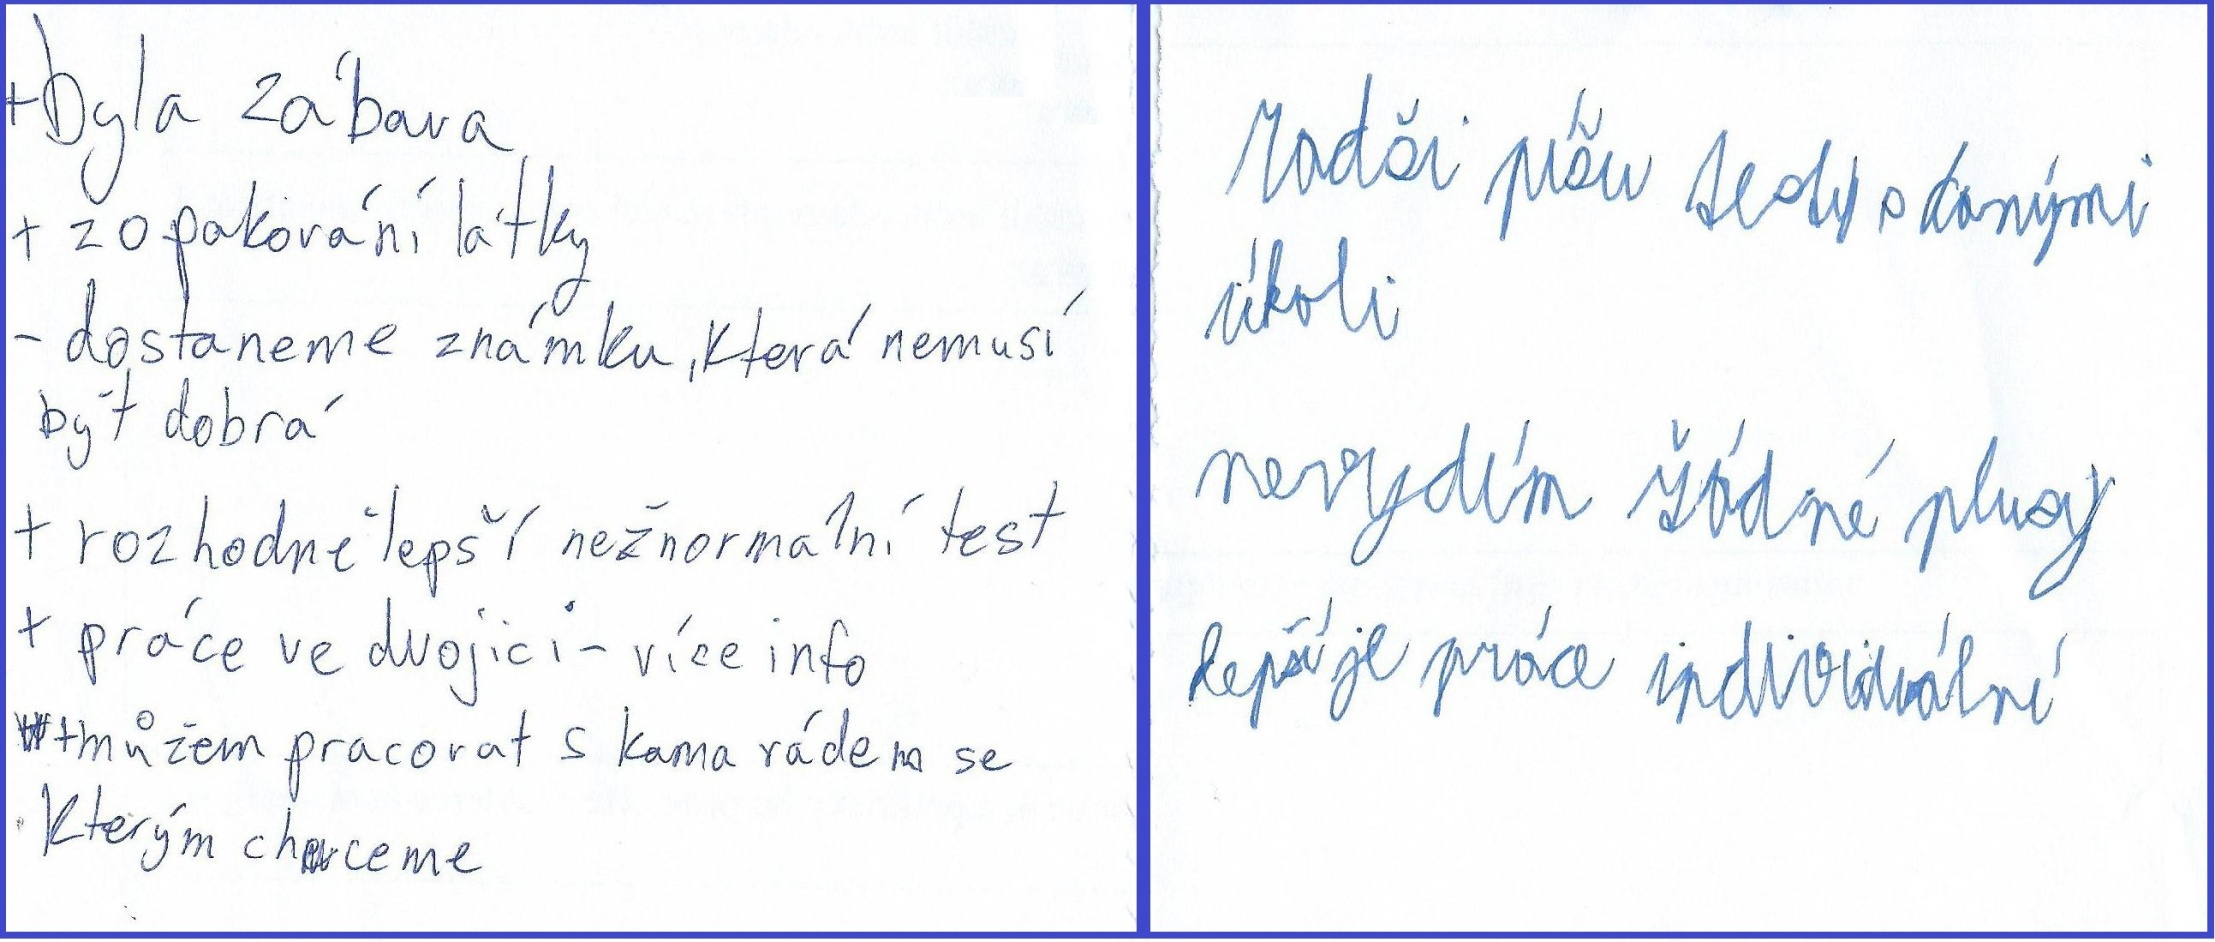 +byla zábava
+ zopakování látky
- dostaneme známku, která nemusí
být dobrá
+ rozhodně lepší než normální test
+ práce ve dvojici - více info
+můžem pracovat s kamarádem se
kterým chceme
radši píšu testy s danými
úkoli
nevydím žádné plusy
lepší je práce individuální